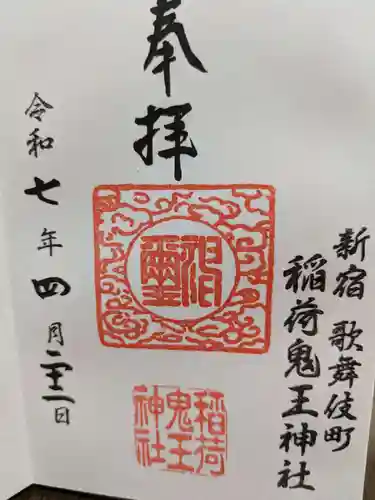 奉拝
新宿 歌舞伎町
稲荷鬼王神社
稲荷
鬼王
神社
令和七年四月二十一日